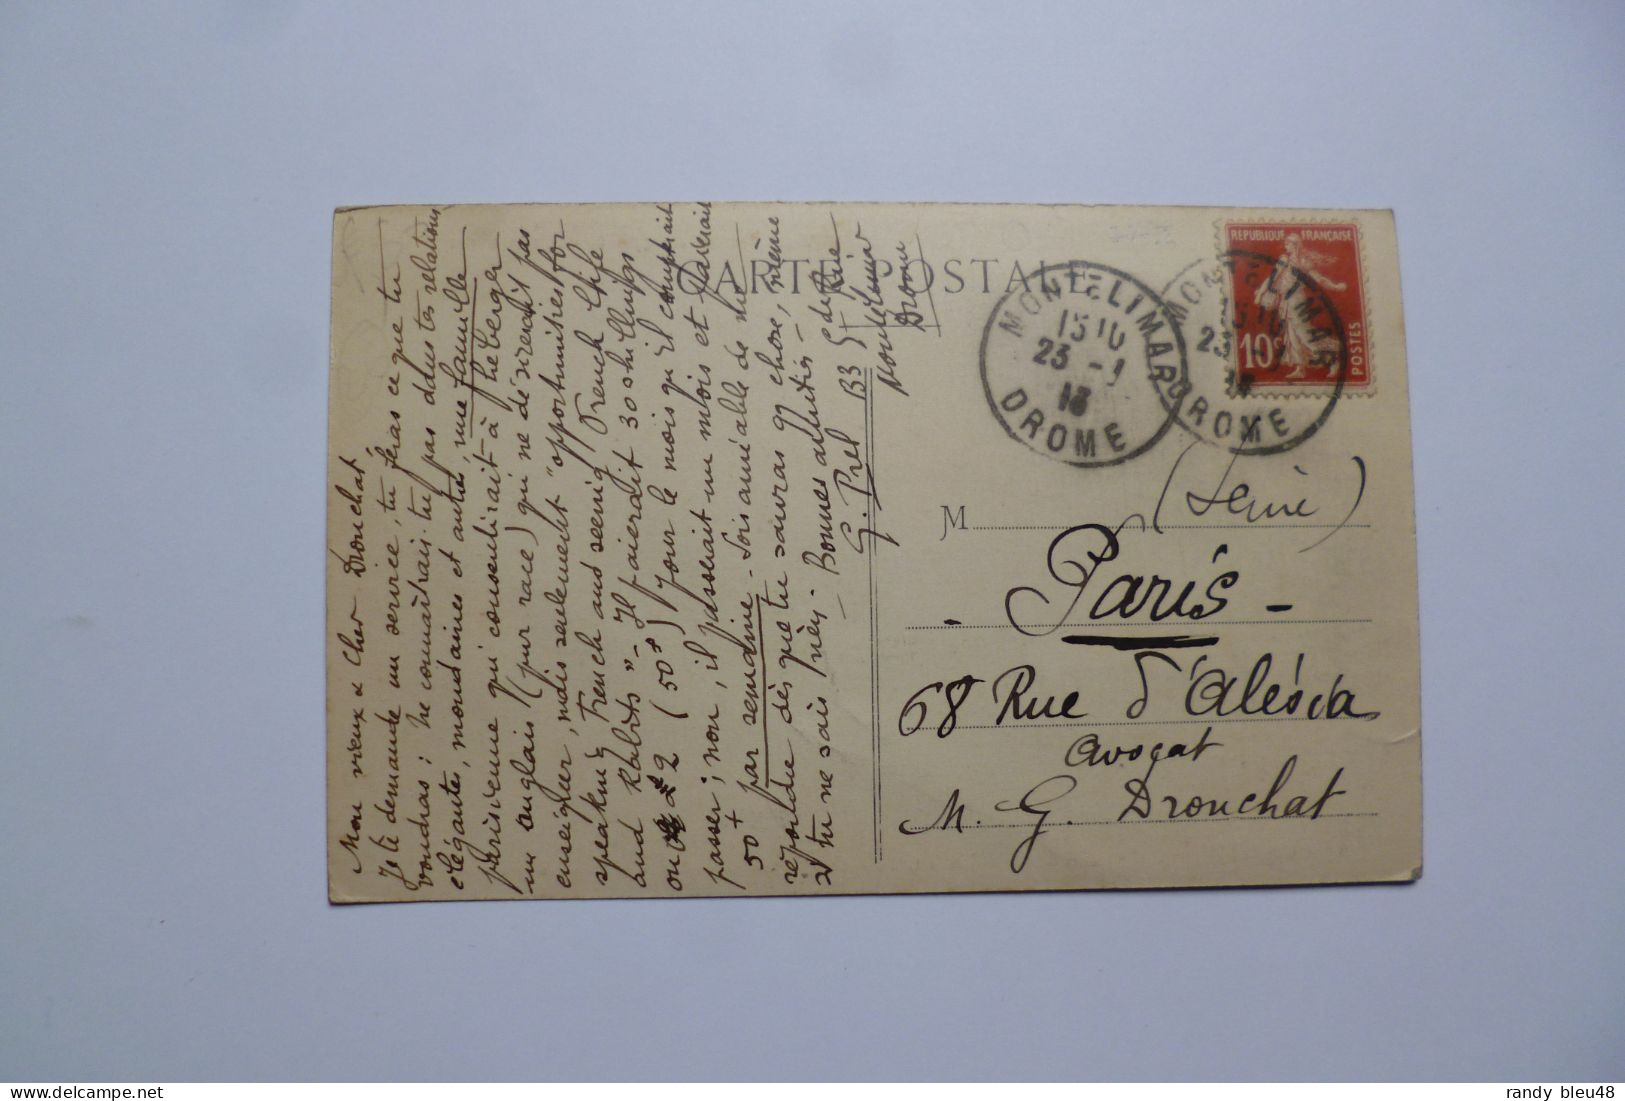 CARTE POSTALE
REPUBLIQUE FRANÇAISE
10c
POSTES
MONTÉLIMAR
13 10
23 - 1
13
DROME
MONTÉLIMAR
23
DROME
Mon vieux & Cher Drouchat,
Je te demande un service, tu feras ce que tu
voudras : ne connaîtrais-tu pas dans tes relations
élégantes, mondaines et autres, une famille
parisienne qui consentirait à héberger
un anglais (pur race) qui ne désirerait pas
enseigner, mais seulement "opportunities for
speaking French and seeing French Life
and Habits" - Il paierait 30 shillings
ou £ 2 (50f) pour le mois qu'il comptait
passer ; non, il passerait un mois et paierait
50f par semaine - Sois aimable de me
répondre dès que tu sauras qq chose, même
si tu ne sais rien. Bonnes amitiés -
G. Prel 133
Montélimar
Drome
M
(Seine)
- Paris -
68 Rue d'Alésia
avocat
M. G. Drouchat
randy bleu48